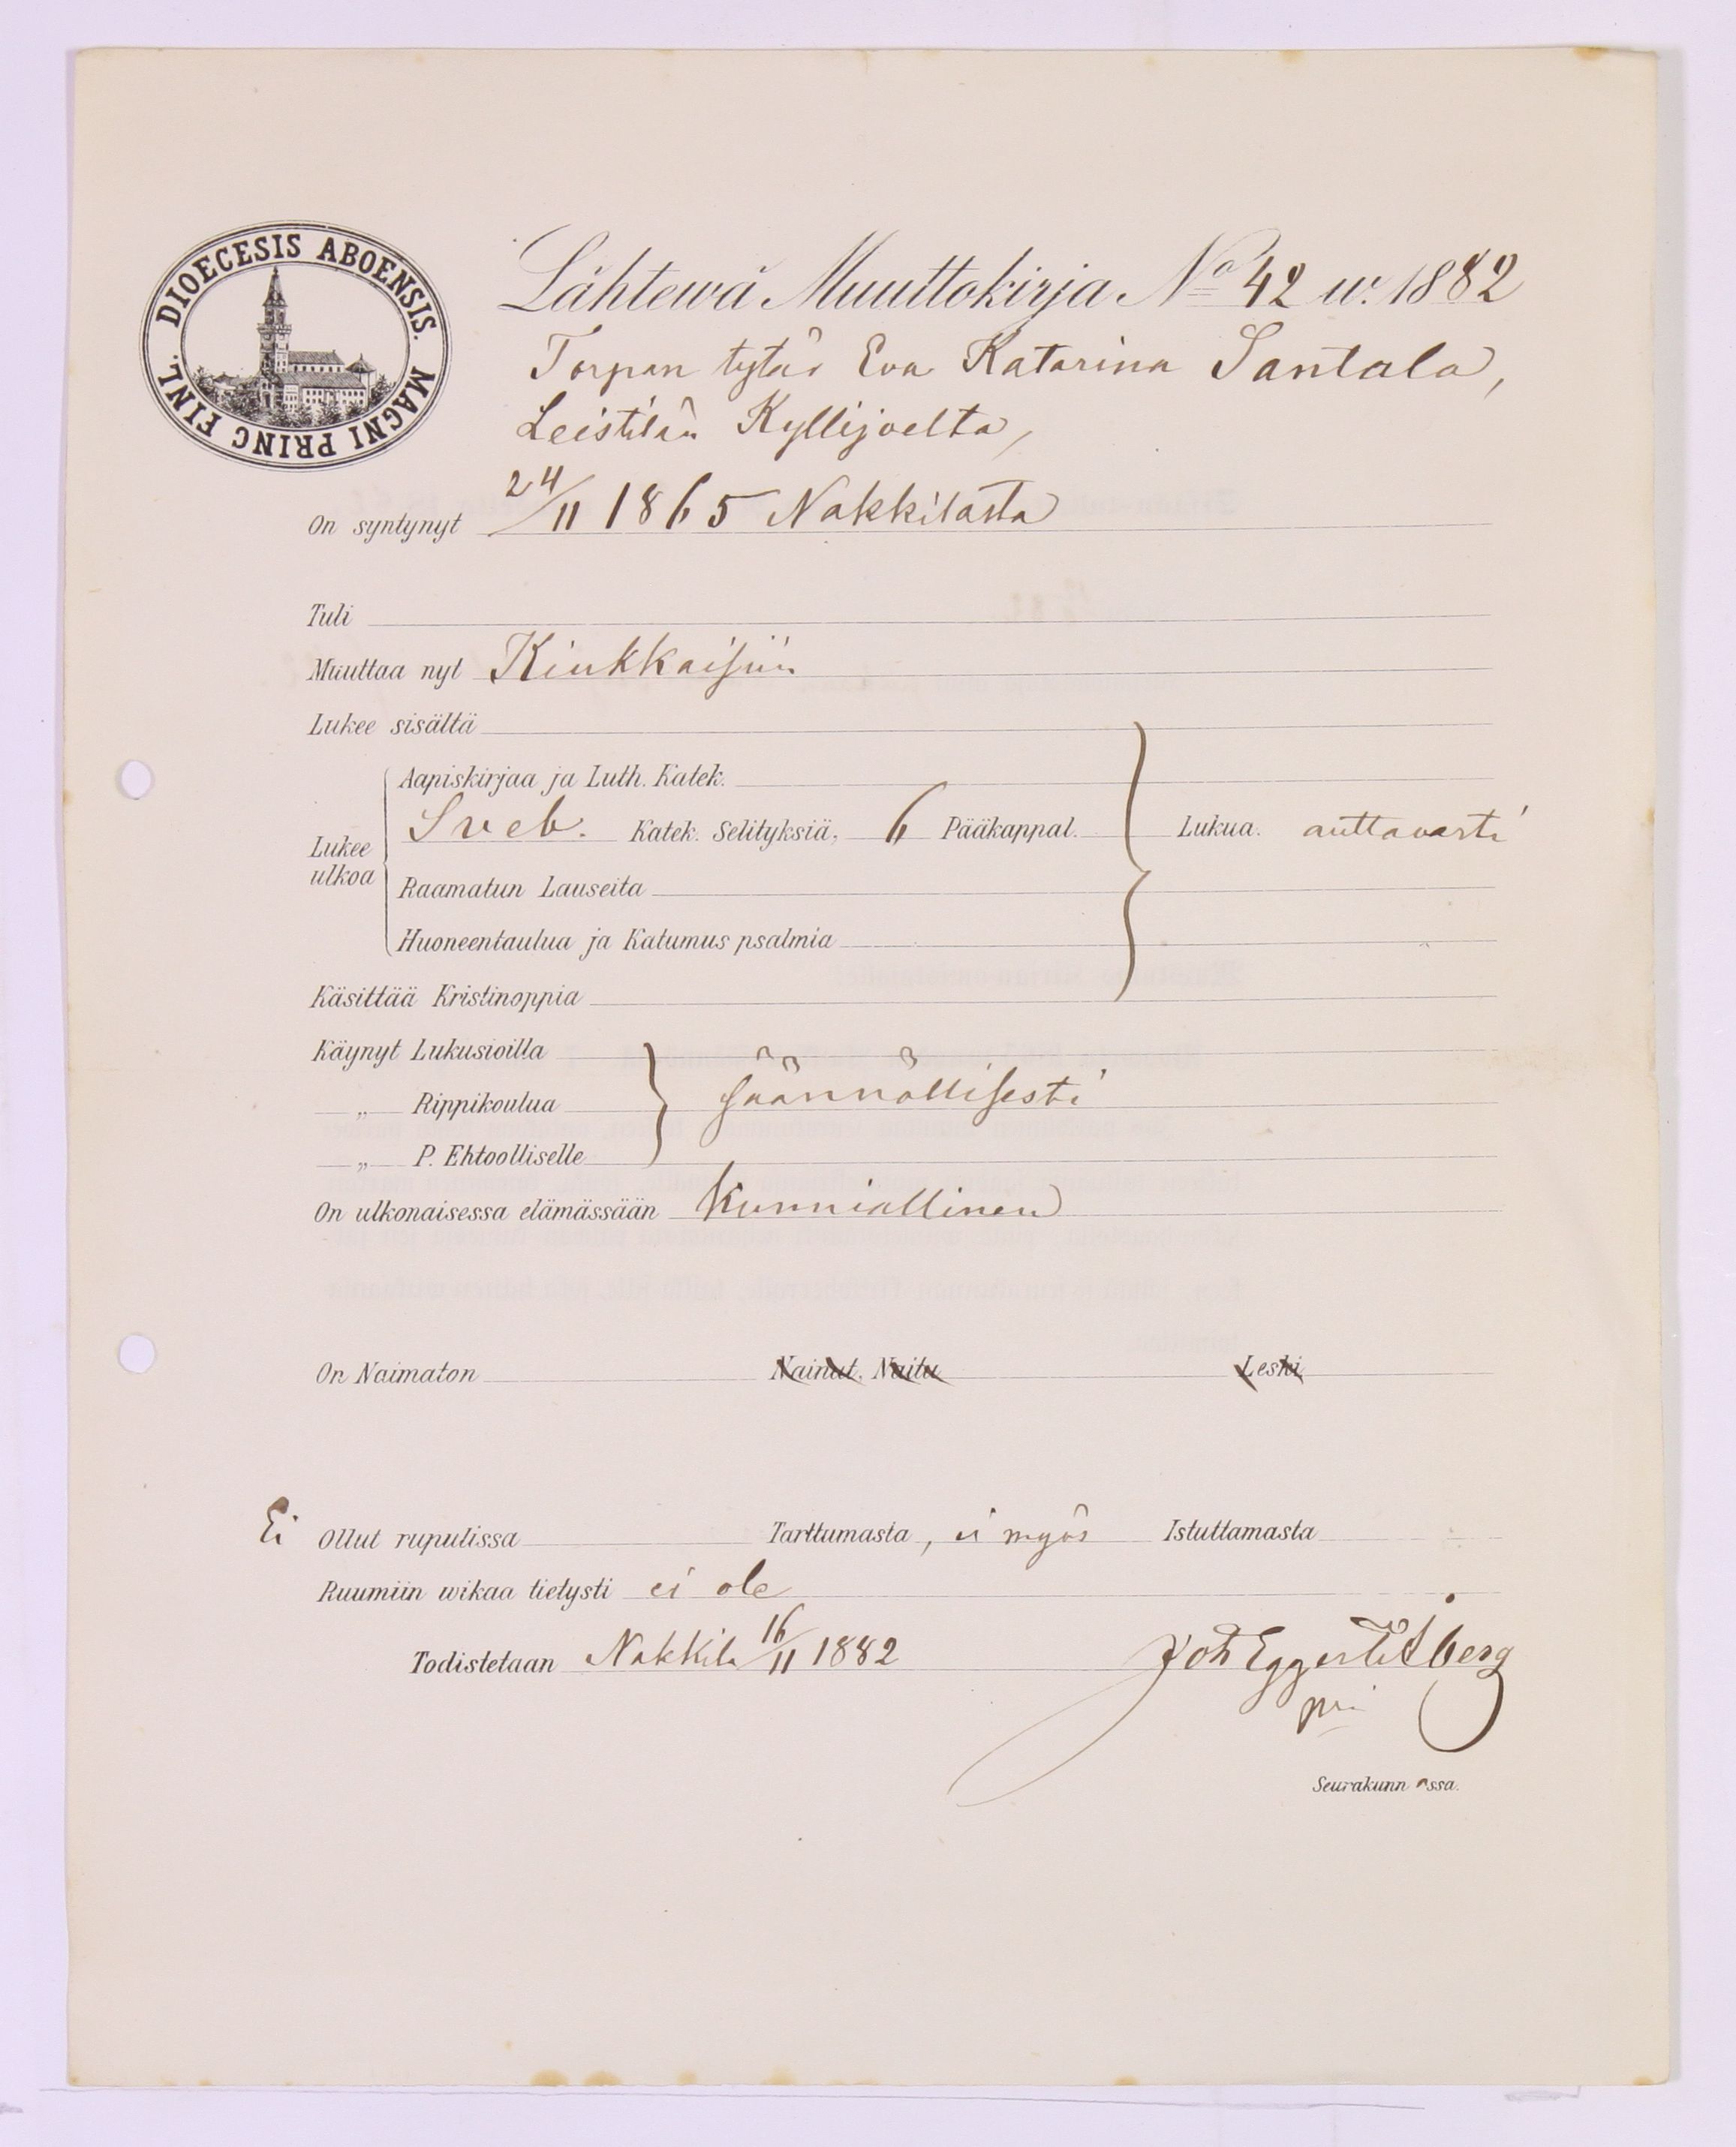 DIOECESIS ABOENSIS. MAGNI PRINC FINL.
Lähtewä Muuttokirja No 42 w. 1882
Torpan tytär Eva Katarina Santala,
Leistilän Kyllijoelta,
On syntynyt 24/11 1865 Nakkilasta
Tuli
Muuttaa nyt Kiukkaisiin
Lukee sisältä
Aapiskirjaa ja Luth. Katek.
Lukee ulkoa
Sveb. Katek. Selityksiä, 6 Pääkappal. Lukua. auttavasti
Raamatun Lauseita
Huoneentaulua ja Katumus psalmia
Käsittää Kristinoppia
Käynyt Lukusioilla
„ Rippikoulua säännöllisesti
„ P. Ehtoolliselle
On ulkonaisessa elämässään Kunniallinen
On Naimaton Nainut, Naitu Leski
Ei Ollut rupulissa Tarttumasta, ei myös Istuttamasta
Ruumiin wikaa tietysti ei ole
Todistetaan Nakkila 16/11 1882
Seurakunn assa.